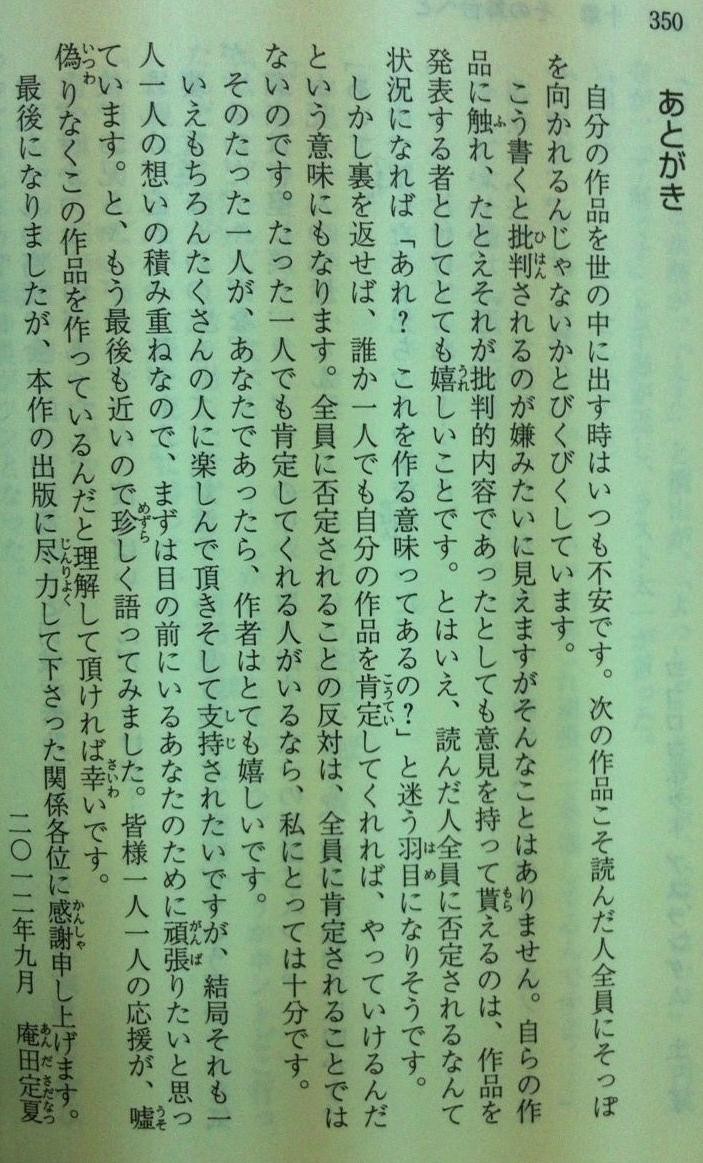 350
あとがき
自分の作品を世の中に出す時はいつも不安です。次の作品こそ読んだ人全員にそっぽ
を向かれるんじゃないかとびくびくしています。
こう書くと批判されるのが嫌みたいに見えますがそんなことはありません。自らの作
品に触れ、たとえそれが批判的内容であったとしても意見を持って貰えるのは、作品を
発表する者としてとても嬉しいことです。とはいえ、読んだ人全員に否定されるなんて
状況になれば「あれ？　これを作る意味ってあるの？」と迷う羽目になりそうです。
しかし裏を返せば、誰か一人でも自分の作品を肯定してくれれば、やっていけるんだ
という意味にもなります。全員に否定されることの反対は、全員に肯定されることでは
ないのです。たった一人でも肯定してくれる人がいるなら、私にとっては十分です。
そのたった一人が、あなたであったら、作者はとても嬉しいです。
いえもちろんたくさんの人に楽しんで頂きそして支持されたいですが、結局それも一
人一人の想いの積み重ねなので、まずは目の前にいるあなたのために頑張りたいと思っ
ています。と、もう最後も近いので珍しく語ってみました。皆様一人一人の応援が、嘘
偽りなくこの作品を作っているんだと理解して頂ければ幸いです。
最後になりましたが、本作の出版に尽力して下さった関係各位に感謝申し上げます。
二〇一二年九月　庵田定夏